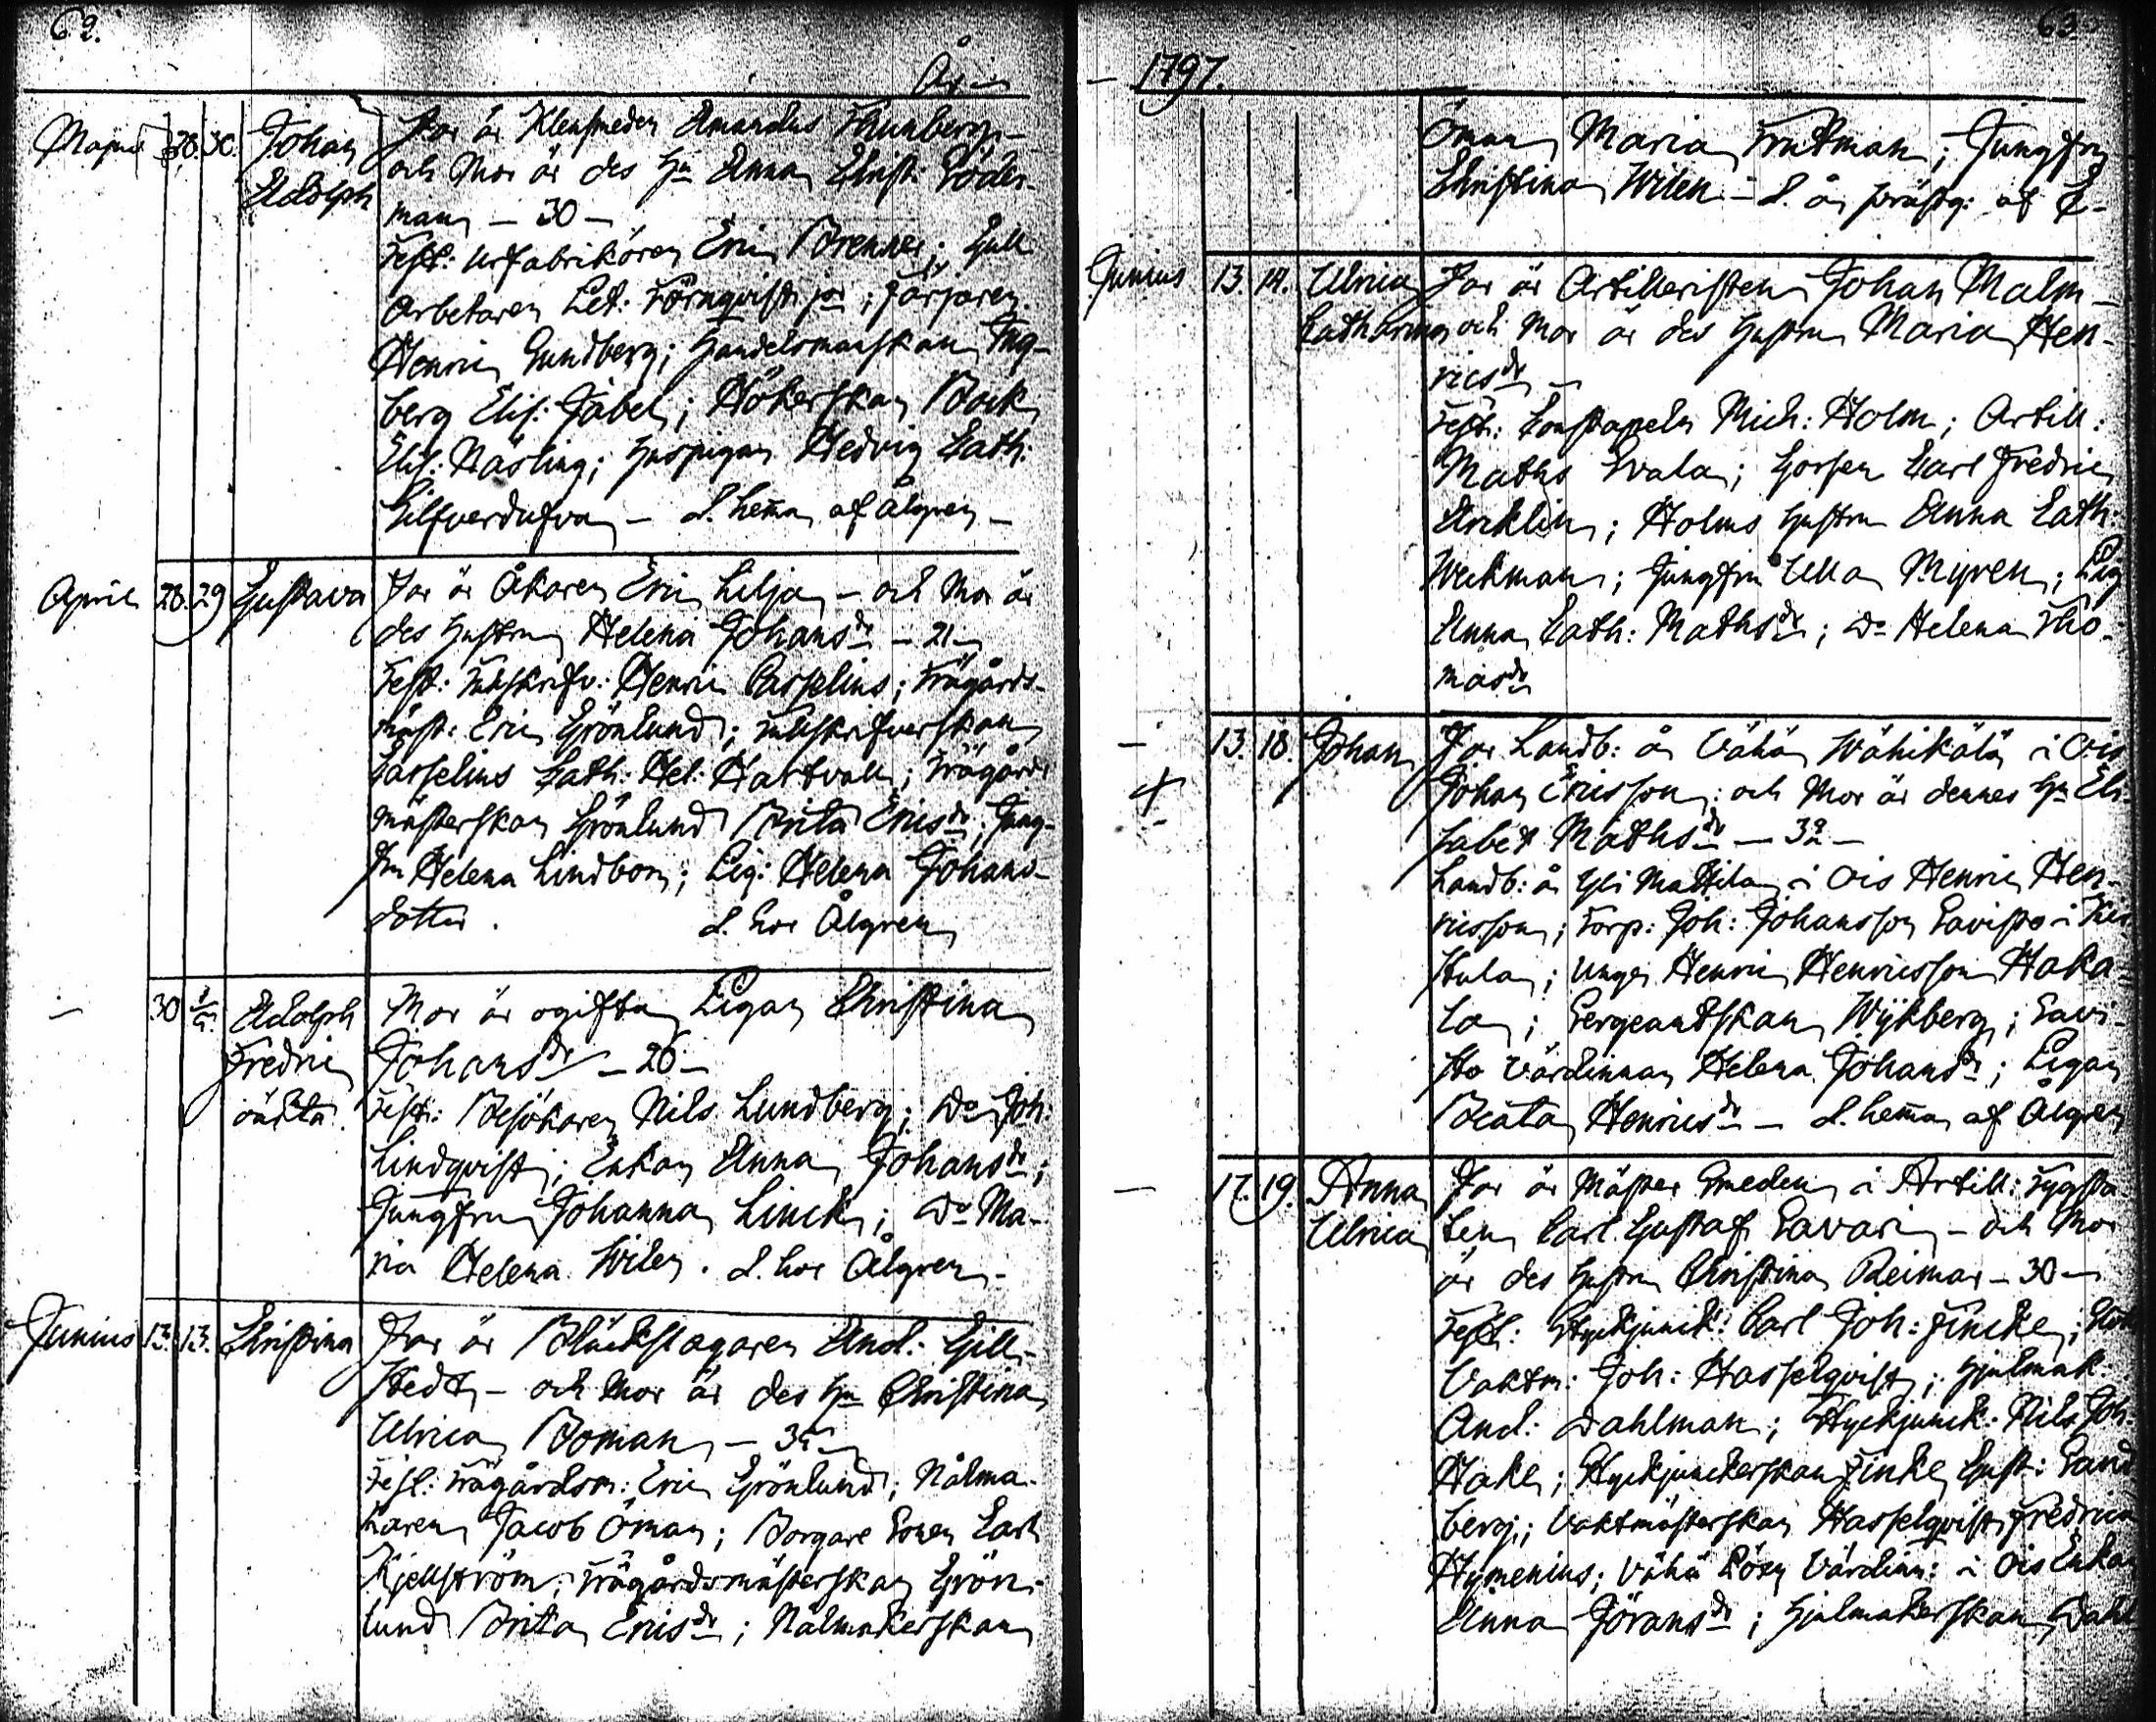 62.
År
Majus 28. 30. Johan Adolph
Far är Klensmeden Amandus Thunberg -
och Mor är des Hu Anna Christ: Söder-
man - 30 -
Test: Urfabrikören Eric Brenner; Gull
Arbetaren Pet: Törnqvist jor; Färjaren
Henric Sundberg; Handelsmanskan Ing-
berg Elis: Jabel; Hökerskan Bock
Elis: Näsling; Huspigan Hedvig Cath.
Silfverdufva - D. hema af Ålgren -
April 28. 29 Gustava
Far är Åkaren Eric Lilja - och Mor är
des Hustru Helena Johansdr - 21 -
Test: Tullskrifv: Henric Carselius; Trägårds-
mäst: Eric Grönlund; Tullskrifverskan
Carselius Cath: Hel: Hartvall; Trägårds
mästerskan Grönlund Brita Ericsdr; Jung-
fru Helena Lindbom; Pig: Helena Johans-
dotter. D. hos Ålgren
- 30 Adolph Fredric oäkta
Mor är ogifta Pigan Christina
Johansdr - 26 -
Test: Besökaren Nils Lundberg; Do Joh:
Lindqvist; Enkan Anna Johansdr;
Jungfrun Johanna Linck; Do Ma-
ria Helena Wilen. D. hos Ålgren -
Junius 13. 13. Christina
Far är Bläckslagaren And: Gill-
stedt - och Mor är des Hu Christina
Ulrica Boman -
Test: Trägårdsm: Eric Grönlund; Nålma-
karen Jacob Öman; Borgare Sonen Carl
Kjellström; Trägårdsmästerskan Grön-
lund Brita Ericsdr; Nålmakerskan
63
- 1797.
Öman Maria Trutman; Jungfru
Christina Wilen - D. å prästg: af
Junius 13. 14. Ulrica Catharina
Far är Artilleristen Johan Malm -
och Mor är des Hustru Maria Hen-
ricsdr -
Test: Constapeln Mich: Holm; Artill:
Maths Wala; Gossen Carl Fredric
Ancklin; Holms Hustru Anna Cath:
Weckman; Jungfru Ulla Myren; Pig
Anna Cath: Mathsdr; Do Helena Tho-
masdr
- 13. 18. Johan
+
Far Landb: å Vähä Wähikälä i Ois
Johan Ericsson; och Mor är dennes Hu Eli-
sabet Mathsdr - 32 -
Landb: å Yli Mattila i Ois Henric Hen-
ricsson; Torp: Joh: Johansson Savisto i Kes
stula; Unge Henric Henricsson Haka-
la; Sergeantskan Wijkberg; Savi-
sto Värdinnan Helena Johansdr; Pigan
Beata Henricsdr - D. hema af Ålgren
- 17. 19. Anna Ulrica
Far är Mäster Smeden i Artill: Tygsta-
ten Carl Gustaf Savari - och Mor
är des Hustru Christina Reimar - 30 -
Test: Styckjunck: Carl Joh: Fincke;
Vaktm: Joh: Hasselqvist; Hjulmak
And: Dahlman; Styckjunck: Nils Joh:
Hake; Styckjunckerskan Finke Gust: Sand
berg; Vaktmästerskan Hasselqvist Fredrica
Hymenius; Vähä Värdinn: i Ois Enkan
Anna Göransdr; Hjulmakerskan Dahl